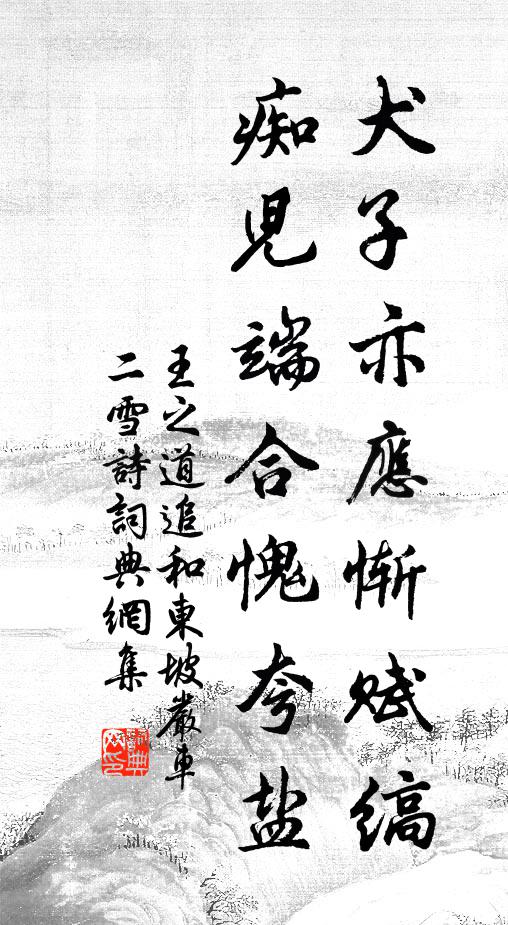 犬子亦應慚赋縞
痴児端合愧夸盐
王之道追和東坡嚴車
二雪詩詞典網集